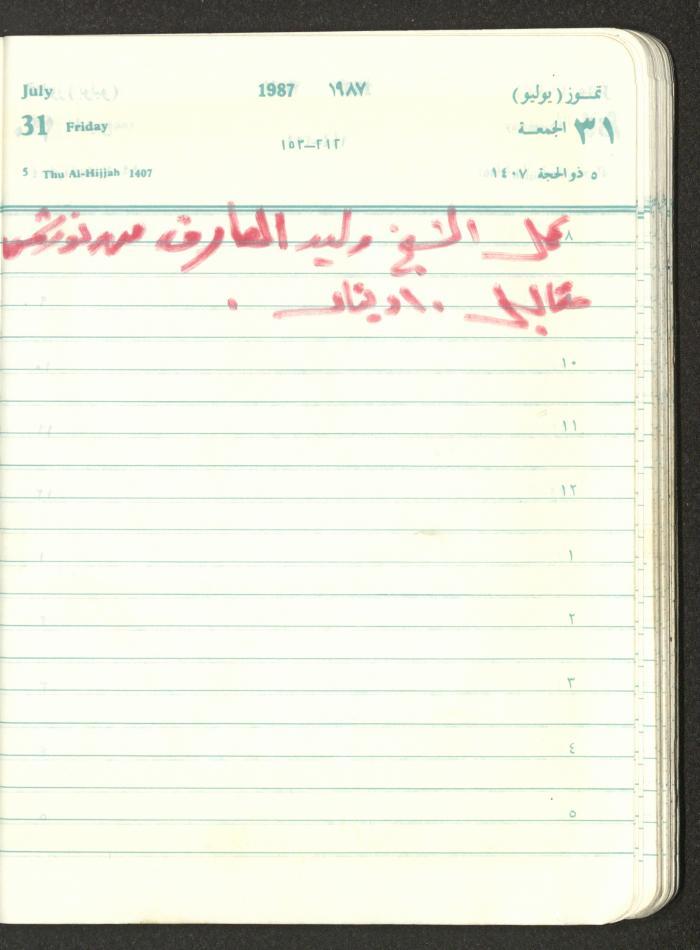 July 1987 ١٩٨٧ تمـــوز ( يوليو )
31 Friday ٢١٢–١٥٣ الجمعـة ٣١
5 Thu Al-Hijjah 1407 ٥ ذو الحجة ١٤٠٧
٨ عمل الشيخ وليد
مقابل ١٠ دينار .
١٠
١١
١٢
١
٢
٣
٤
٥